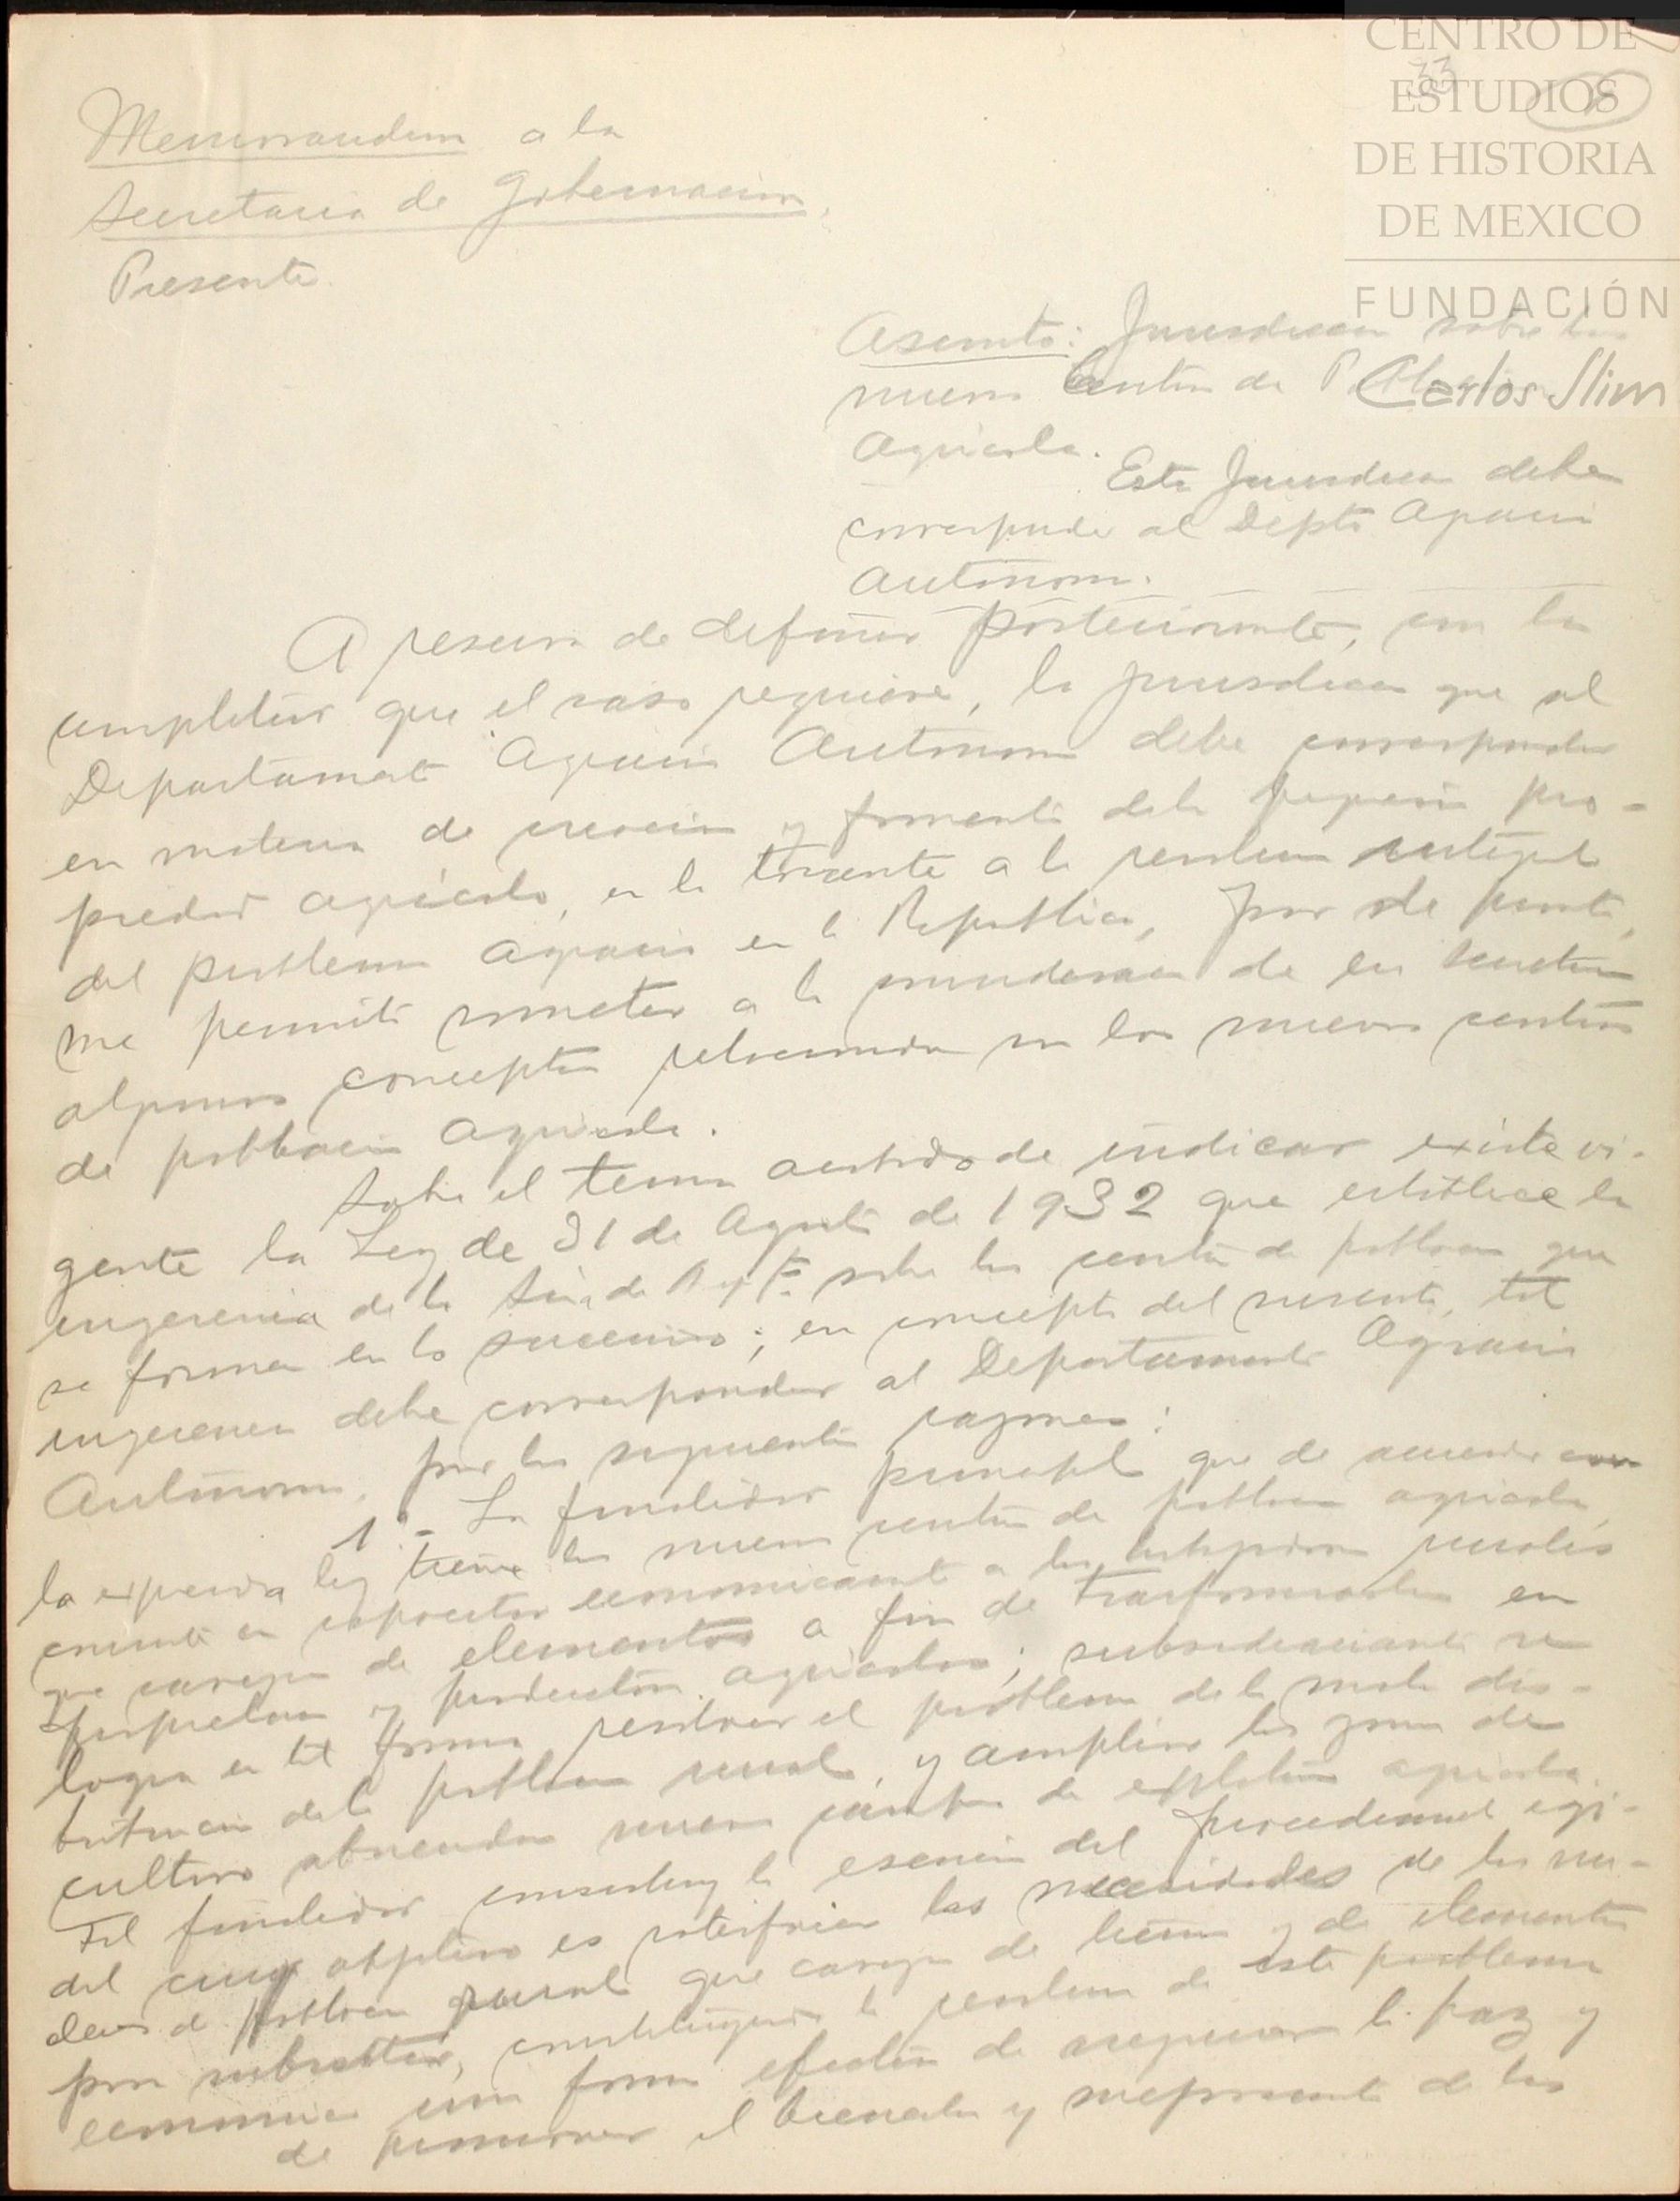 CENTRO DE
ESTUDIOS
DE HISTORIA
DE MEXICO
FUNDACIÓN
Carlos Slim
33
Memorandum a la
Secretaria de Gobernacion.
Presente.
Asunto: Jurisdiccion sobre los
nuevos Centros de
Agricola.
Esta Jurisdiccion debe
corresponder al Depto Agrario
Autonomo.
A reserva de definir posteriormente, con la
amplitud que el caso requiere, la jurisdiccion que al
Departamento Agrario Autonomo debe corresponder
en materia de creacion y fomento de la pequeña pro-
piedad agricola, en lo tocante a la resolucion integral
del problema agrario en la Republica, por de pronto,
me permito someter a la consideracion de esa Secretaria
algunos conceptos relacionados con los nuevos centros
de poblacion agricola.
Sobre el tema acabado de indicar existe vi-
gente la Ley de 31 de Agosto de 1932 que establece la
ingerencia de la Sria. de sobre los centros de poblacion que
se formen en lo sucesivo; en concepto del suscrito, tal
ingerencia debe corresponder al Departamento Agrario
Autonomo, por las siguientes razones:
1°- La finalidad principal que de acuerdo con
la expresada ley tienen los nuevos centros de poblacion agricola,
consiste en capacitar economicamente a los trabajadores rurales
que carezcan de elementos a fin de transformarlos en
propietarios y productores agricolas; subsidiariamente se
logra en tal forma resolver el problema de la mala dis-
tribucion de la poblacion rural, y ampliar las zonas de
cultivo abriendo nuevos campos de explotacion agricola.
Tal finalidad constituye la esencia del procedimiento eji-
dal cuyo objetivo es satisfacer las necesidades de los nu-
cleos de poblacion rural que carezcan de tierras y de elementos
para subsistir, constituyendo la resolucion de este problema
economico una forma efectiva de asegurar la paz y
de promover el bienestar y mejoramiento de los